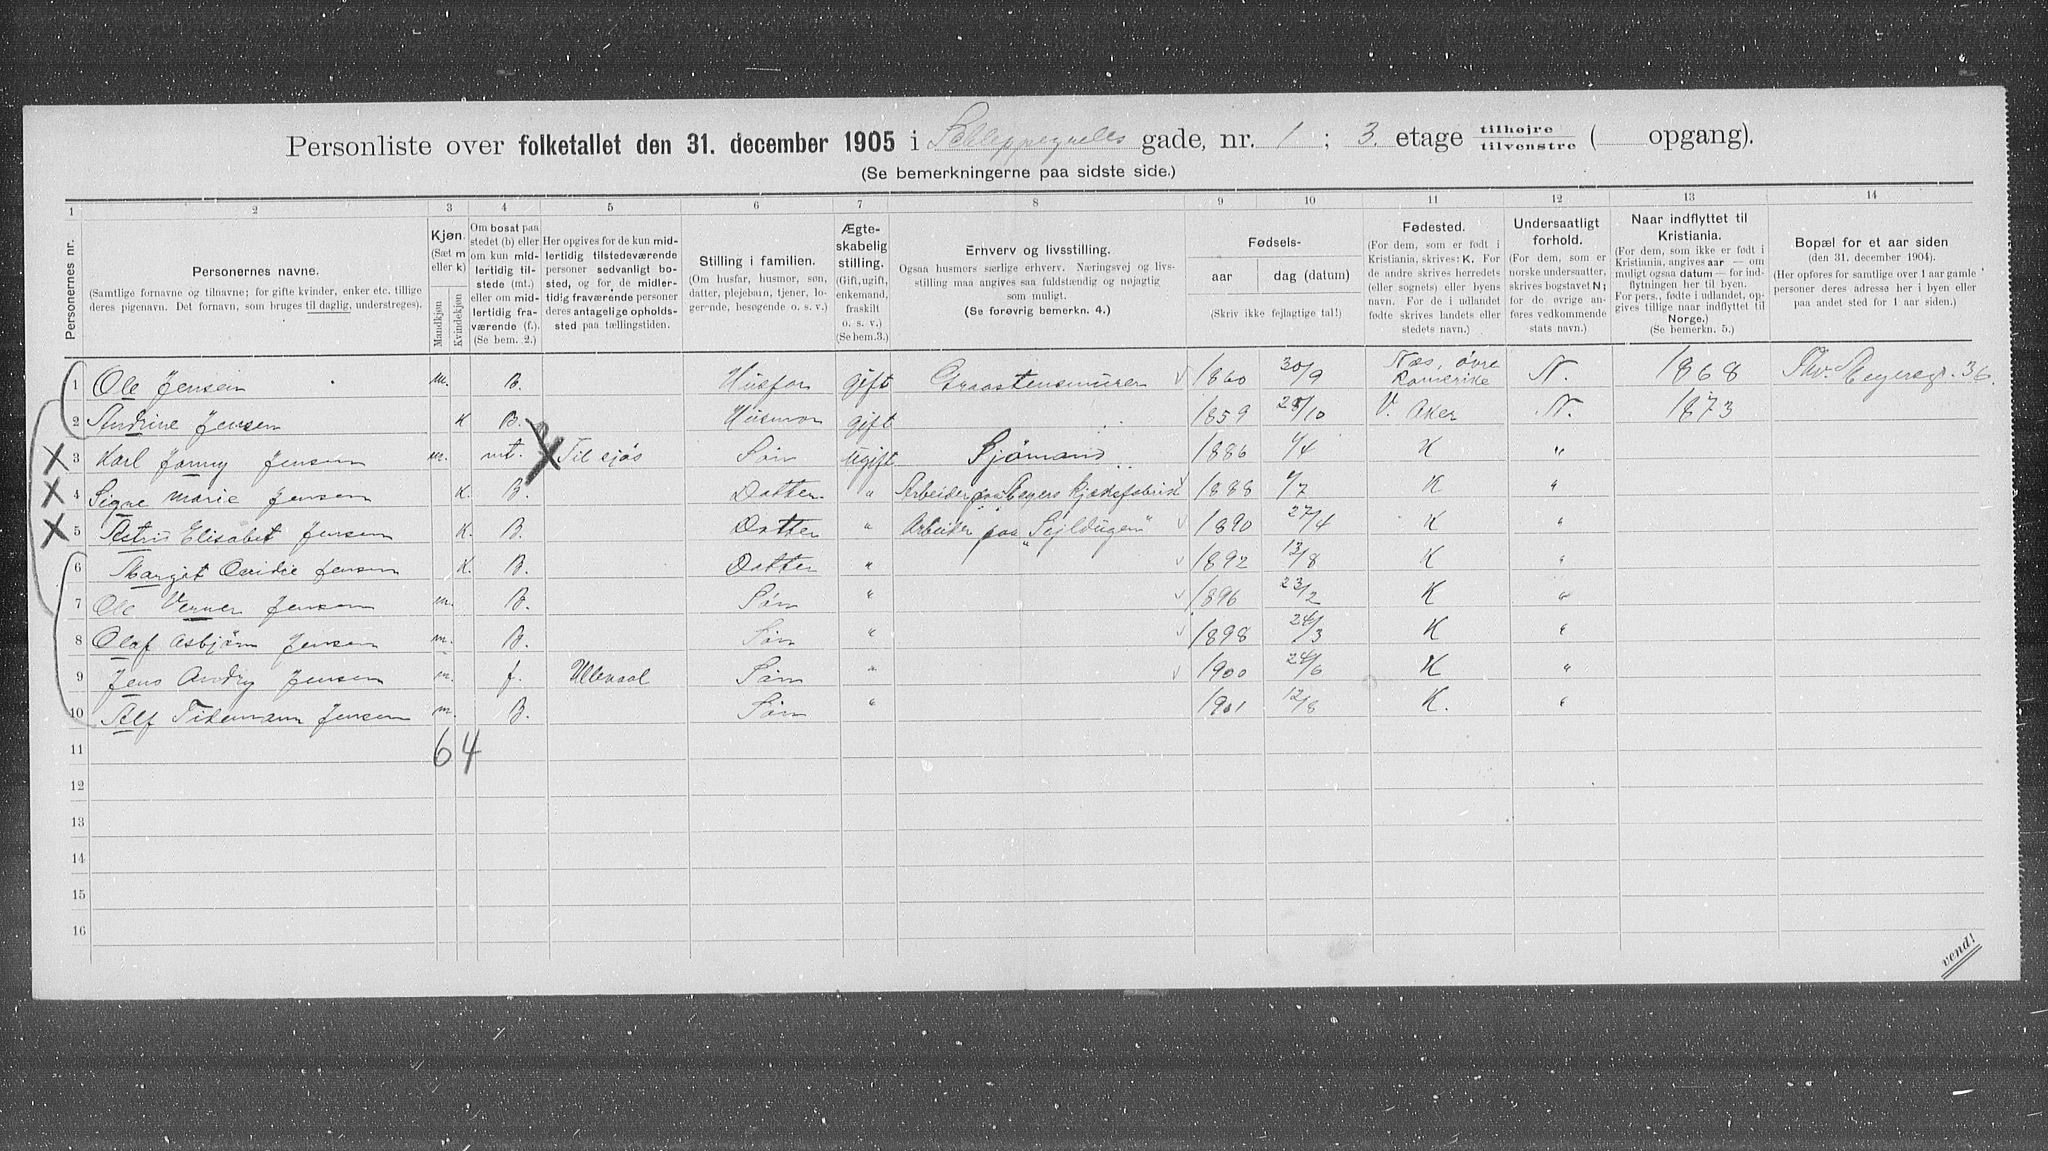 Personliste over folketallet den 31. december 1905 i Schleppegrells gade, nr. 1 ; 3. etage tilhøjre tilvenstre ( opgang).
(Se bemerkningerne paa sidste side.)
1 2 3 4 5 6 7 8 9 10 11 12 13 14
Personernes nr.
Personernes navne.
(Samtlige fornavne og tilnavne; for gifte kvinder, enker etc. tillige
deres pigenavn. Det fornavn, som bruges til daglig, understreges).
Kjøn.
(Sæt m
eller k)
Mandkjøn
Kvindekjøn
Om bosat paa
stedet (b) eller
om kun mid-
lertidig til-
stede (mt.)
eller om mid-
lertidig fra-
værende (f.).
(Se bem. 2.)
Her opgives for de kun mid-
lertidig tilstedeværende
personer sedvanligt bo-
sted, og for de midler-
tidig fraværende personer
deres antagelige opholds-
sted paa tællingstiden.
Stilling i familien.
(Om husfar, husmor, søn,
datter, plejebarn, tjener, lo-
gerende, besøgende o. s. v.)
Ægte-
skabelig
stilling.
(Gift, ugift,
enkemand,
fraskilt
o. s. v.)
(Se bem. 3.)
Erhverv og livsstilling.
Ogsaa husmors særlige erhverv. Næringsvej og livs-
stilling maa angives saa fuldstændig og nøjagtig
som muligt.
(Se forøvrig bemerkn. 4.)
Fødsels-
aar dag (datum)
(Skriv ikke fejlagtige tal!)
Fødested.
(For dem, som er født i
Kristiania, skrives: K. For
de andre skrives herredets
(eller sognets) eller byens
navn. For de i udlandet
fødte skrives landets eller
stedets navn.)
Undersaatligt
forhold.
(For dem, som er
norske undersaatter,
skrives bogstavet N;
for de øvrige an-
føres vedkommende
stats navn.)
Naar indflyttet til
Kristiania.
(For dem, som ikke er født i
Kristiania, angives aar — om
muligt ogsaa datum — for ind-
flytningen her til byen.
For pers., fødte i udlandet, op-
gives tillige naar indflyttet til
Norge.)
(Se bemerkn. 5.)
Bopæl for et aar siden
(den 31. december 1904).
(Her opføres for samtlige over 1 aar gamle
personer deres adresse her i byen eller
paa andet sted for 1 aar siden.)
1 Ole Jensen m. B. Husfar gift Graastensmurer 1860 30/9 Næs, øvre Romerike N. 1868 Thv. Meyersgt. 36.
2 Andrine Jensen K B. Husmor gift 1859 28/10 V. Aker N. 1873
3 Karl Jonny Jensen m. mt. Til sjøs Søn Ugift Sjømand 1886 1/4 K "
4 Signe Marie Jensen K. B. Datter " Arbeider paa Meyers kjæksfabrik 1888 4/7 K "
5 Astrid Elisabet Jensen K. B. Datter " Arbeider paa „Seildugen" 1890 27/4 K "
6 Margit Ovidie Jensen K. B. Datter " 1892 13/8 K "
7 Ole Verner Jensen m. B. Søn " 1896 23/2 K "
8 Olaf Asbjørn Jensen m. B. Søn " 1898 24/3 K "
9 Jens Andry Jensen m. f. Ullevaal Søn " 1900 24/6 K "
10 Alf Tidemann Jensen m. B. Søn " 1901 12/8 K. "
11 6 4
12
13
14
15
16
vend!